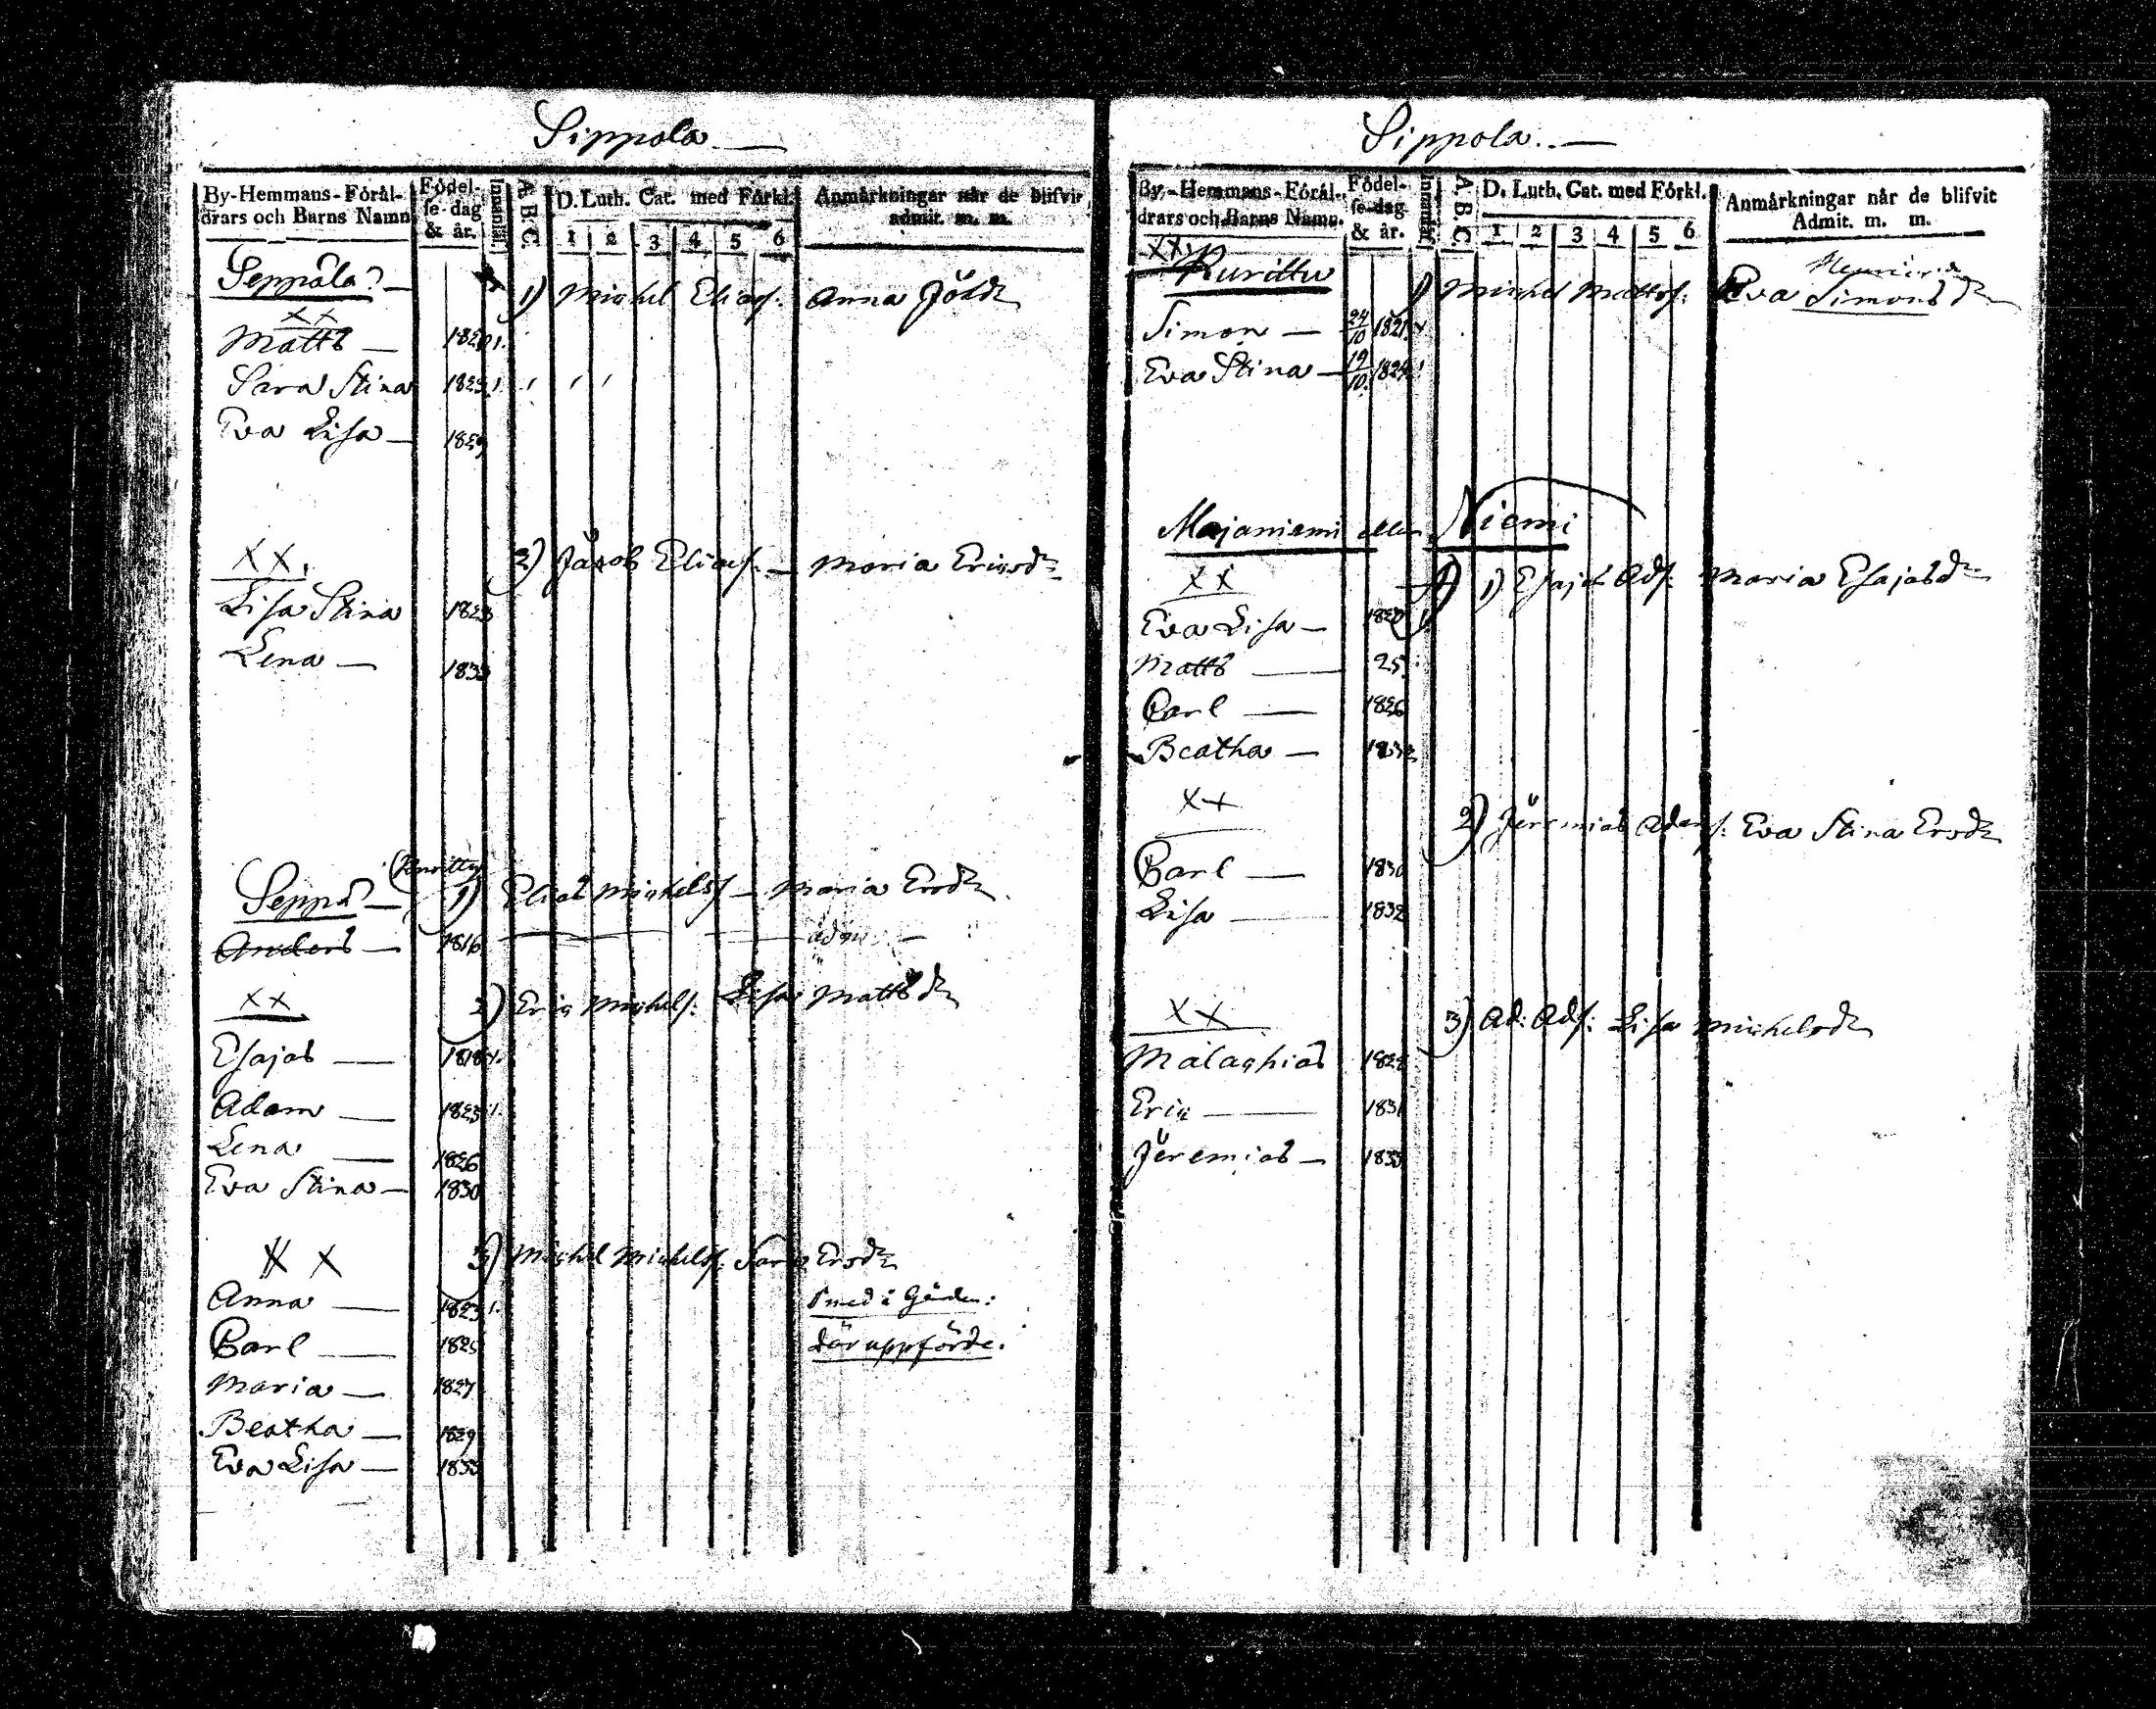 Sippola. —
By-Hemmans-Föräl-
drars och Barns Namn
Födel-
se-dag
& år.
Innanläs.
A B C.
D. Luth. Cat. med Förkl.
1 2 3 4 5 6
Anmärkningar når de blifvit
admit. m. m.
Seppälä
1) Michel Eliæs: Anna Joh:dr
XX
Matts — 1820
Sara Stina 1823
Eva Lisa — 1829
XX.
2) Jacob Eliæs: — Maria Ericsdr
Lisa Stina 1823
Lena — 1833
Seppä —
1) Elias Michelss — Maria Ersdr
Anders — 1816 adm —
XX
2) Eric Michels: Lisa Mattsdr
Esajas — 1818
Adam — 1823
Lena — 1826
Eva Stina — 1830
X X
3) Michel Michelss: Sara Ersdr
Anna — 1823
Carl — 1825
där uppförde.
Maria — 1827
Beatha — 1829
Eva Lisa — 1833
Sippola. —
By-Hemmans-Förål-
drars och Barns Namn.
Födel-
se-dag
& år.
Innanläs.
A. B. C.
D. Luth. Cat. med Förkl.
1 2 3 4 5 6
Anmårkningar når de blifvit
Admit. m. m.
XX
Kurittu
1) Michel Mattss: Eva Simonsdr
Simon — 24/10 1821
Eva Stina — 19/10 1824
Majaniemi eller Niemi
XX
1) Esajas Ads: Maria Esajasdr
Eva Lisa — 1820
Matts — 25
Carl — 1826
Beatha — 1832
XX
2) Jeremias Adams: Eva Stina Ersdr
Carl — 1830
Lisa — 1832
XX
3) Ad: Ads: Lisa Michelsdr
Malachias 1828
Eric — 1831
Jeremias — 1833